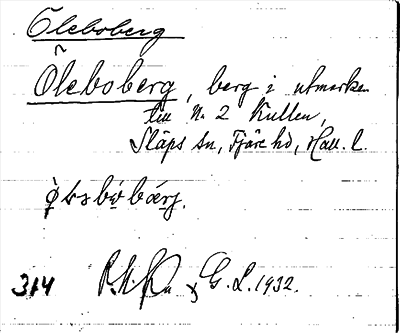 Öleboberg
Öleboberg, berg i utmarken
till N. 2 Kullen,
Släps sn, Fjäre hd, Hall. l.
314 G. L. 1932.